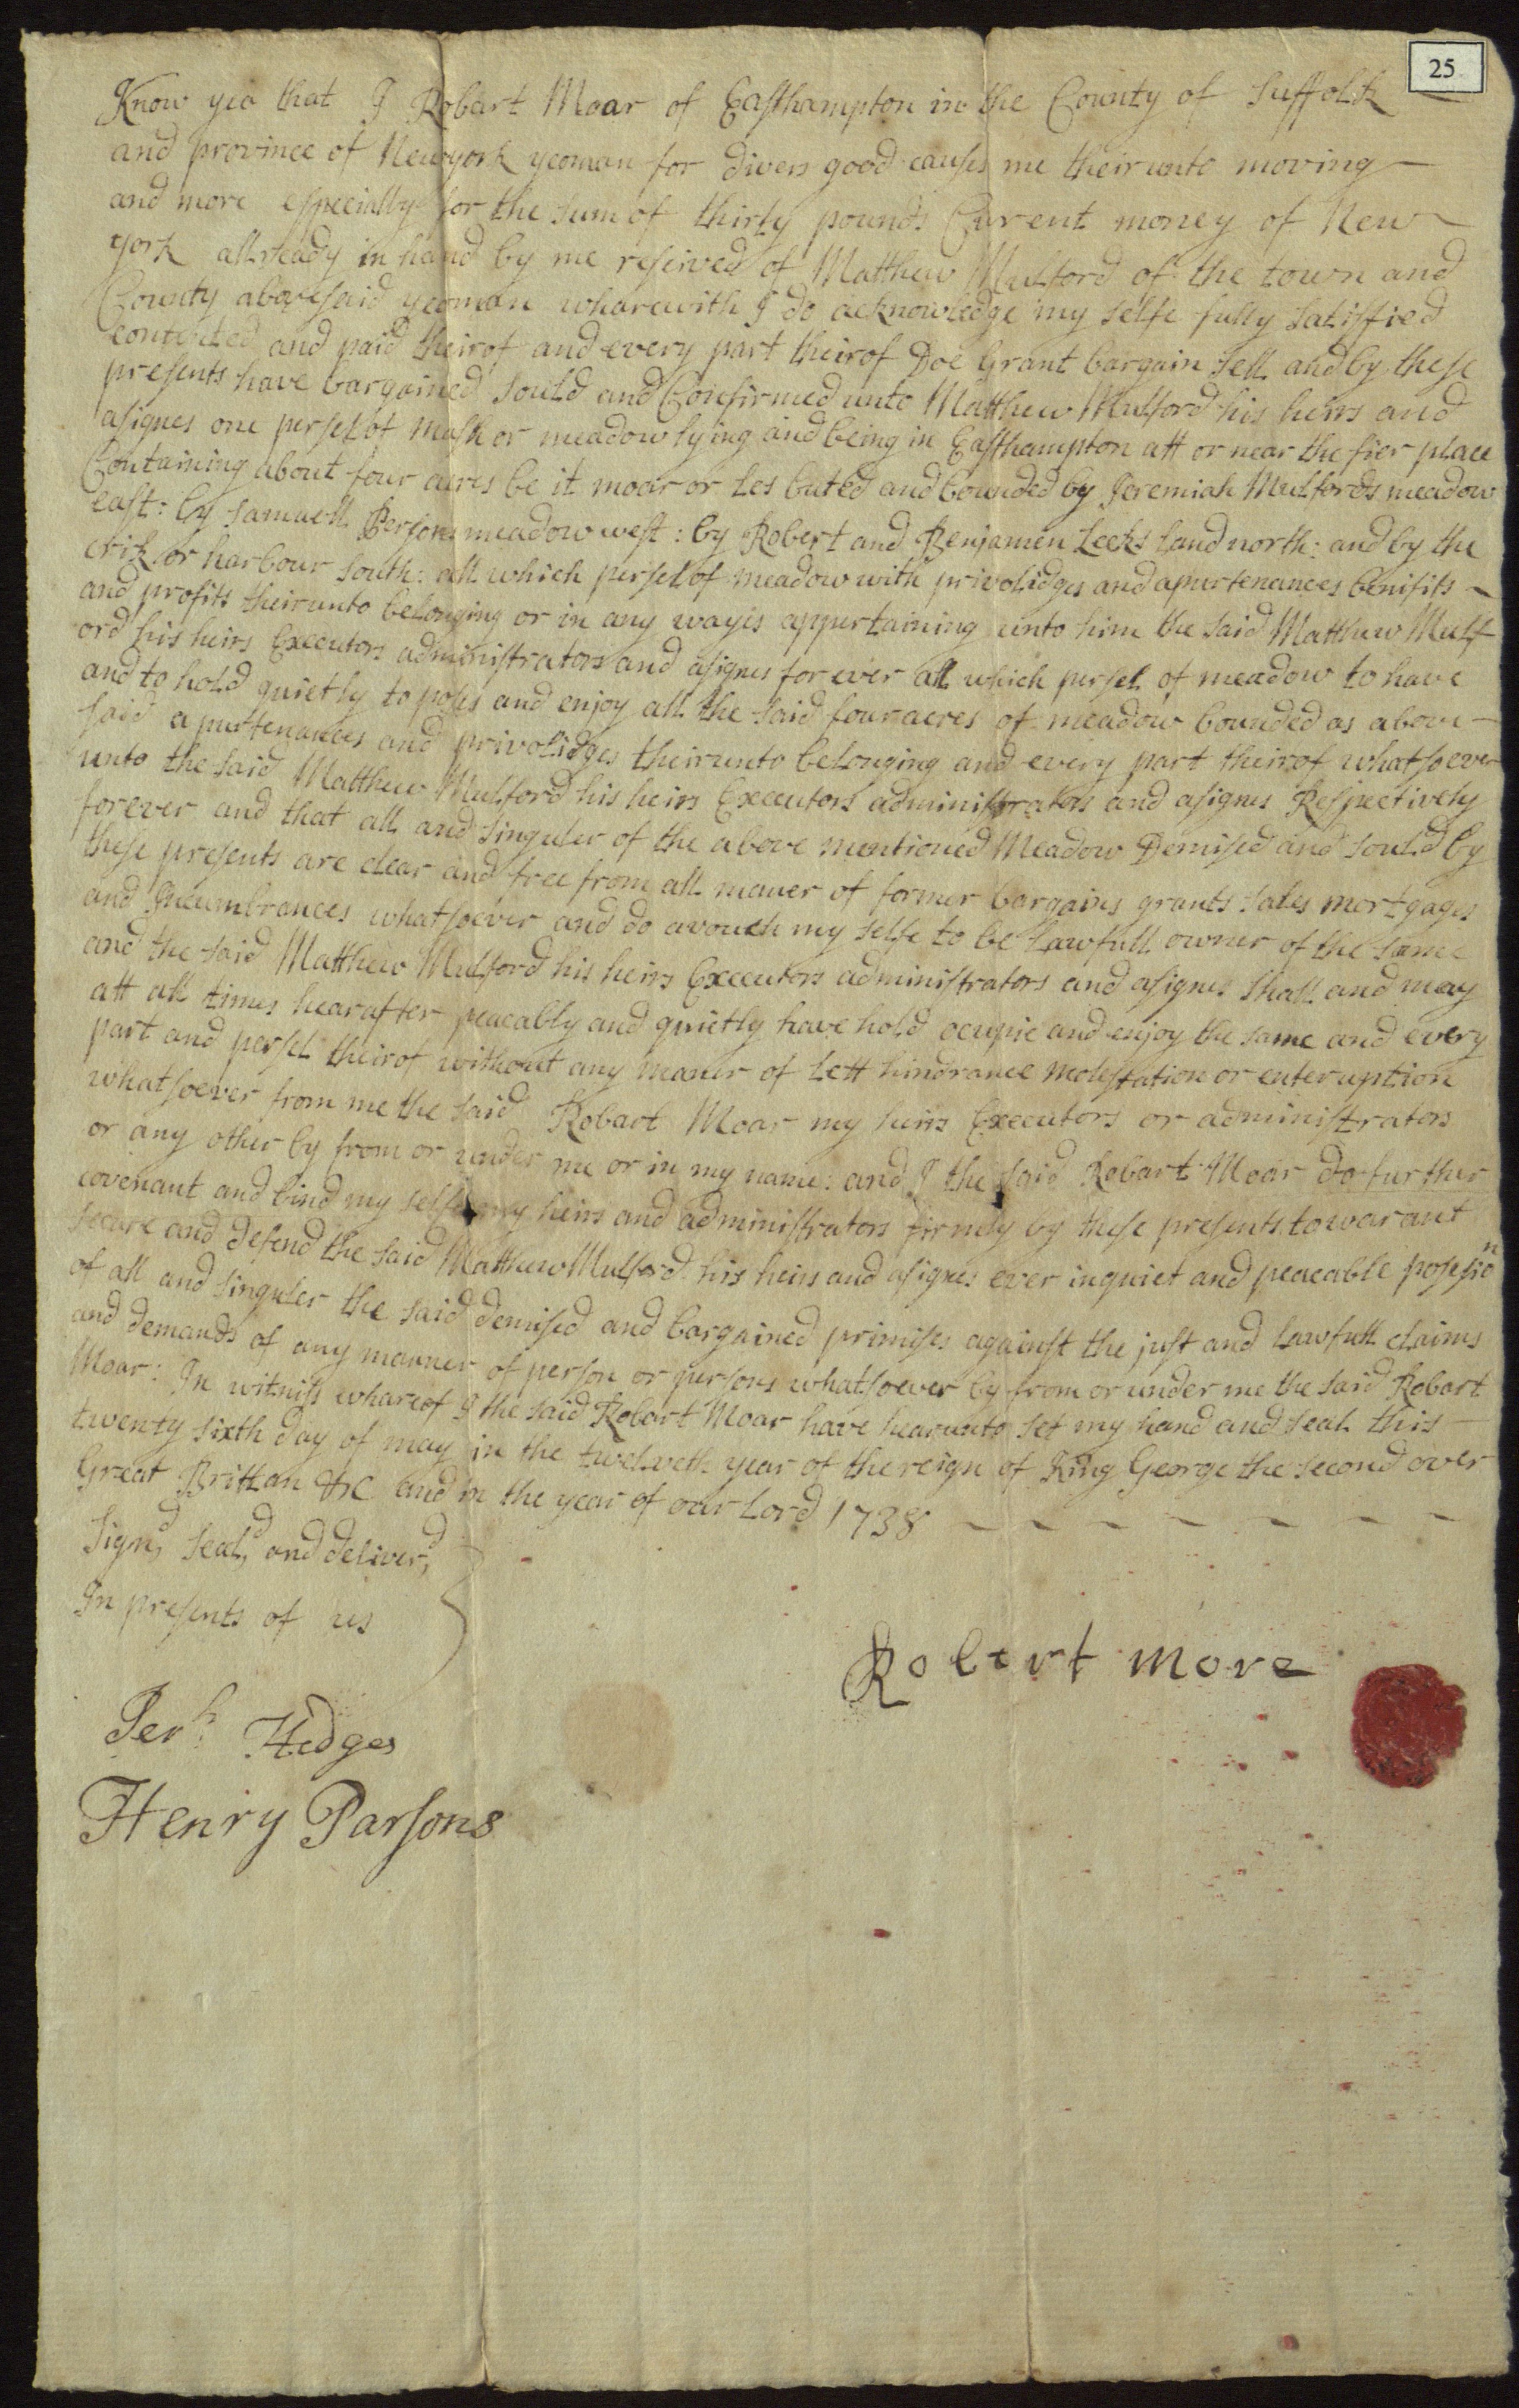 25
Know yea that I Robart Moar of Easthampton in the County of Suffolk
and province of Newyork yeoman for divers good causes me theirunto moving
and more especially for the sum of thirty pounds Curent money of New
york allready in hand by me reseived of Matthew Mulford of the town and
County abovesaid yeoman wharewith I do acknowledge my selfe fully satisfied
contented and paid theirof and every part theirof Doe Grant bargain sell and by these
presents have bargained sould and Confirmed unto Matthew Mulford his heirs and
asignes one persel of mash or meadow lying and being in Easthampton att or near the fier place
Containing about four acres be it moar or les buted and bounded by Jeremiah Mulfords meadow
east: by Samuell Persons meadow west: by Robert and Benjamen Leeks land north: and by the
crik or harbour south: all which persel of meadow with privolidges and apurtenances benifits
and profits theirunto belonging or in any wayes appertaining unto him the said Matthew Mulf
ord his heirs Executors administrators and asignes for ever all which persel of meadow to have
and to hold quietly to poses and enjoy all the said four acres of meadow bounded as above
said apurtenances and privolidges theirunto belonging and every part theirof whatsoever
unto the said Matthew Mulford his heirs Executors administrators and asignes Respectively
forever and that all and singuler of the above mentioned Meadow Demised and sould by
these presents are clear and free from all maner of former bargains grants sales mortgages
and Incumbrances whatsoever and do avouch my selfe to be lawfull owner of the same
and the said Matthew Mulford his heirs Executors administrators and asignes shall and may
att all times hearafter peacably and quietly have hold ocupie and enjoy the same and every
part and persel theirof without any maner of lett hindrance molestation or enteruption
whatsoever from me the said Robart Moar my heirs Executors or administrators
or any other by from or under me or in my name: and I the said Robart Moar do further
covenant and bind my selfe my heirs and administrators firmely by these presents to warant
secure and defend the said Matthew Mulford his heirs and asignes ever in quiet and peaceable posesion
of all and singuler the said demised and bargained primises against the just and lawfull claims
and demands of any manner of person or persons whatsoever by from or under me the said Robart
Moar: In witniss whareof I the said Robart Moar have hearunto set my hand and seal this
twenty sixth day of may in the twelveth year of the reign of King George the second over
Great Brittan &c and in the year of our Lord 1738
Signd, Seald, and deliverd,
In presents of us
Robert more
Jerh Hedges
Henry Parsons